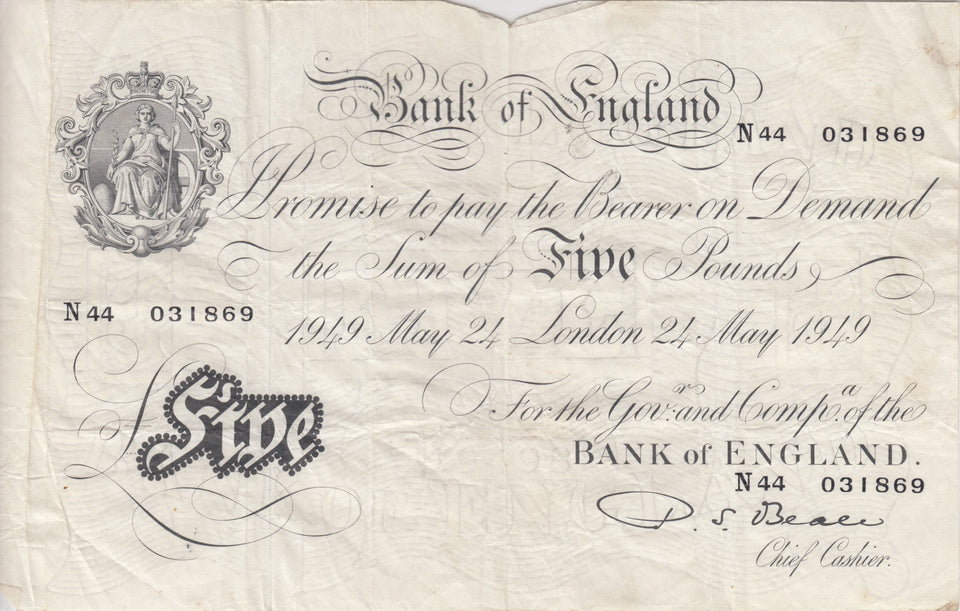 Bank of England
N44 031869
I Promise to pay the Bearer on Demand
the Sum of Five Pounds
N44 031869
1949 May 24 London 24 May 1949
£Five
For the Gov.r and Comp.a of the
BANK of ENGLAND.
N44 031869
P. S. Beale
Chief Cashier.